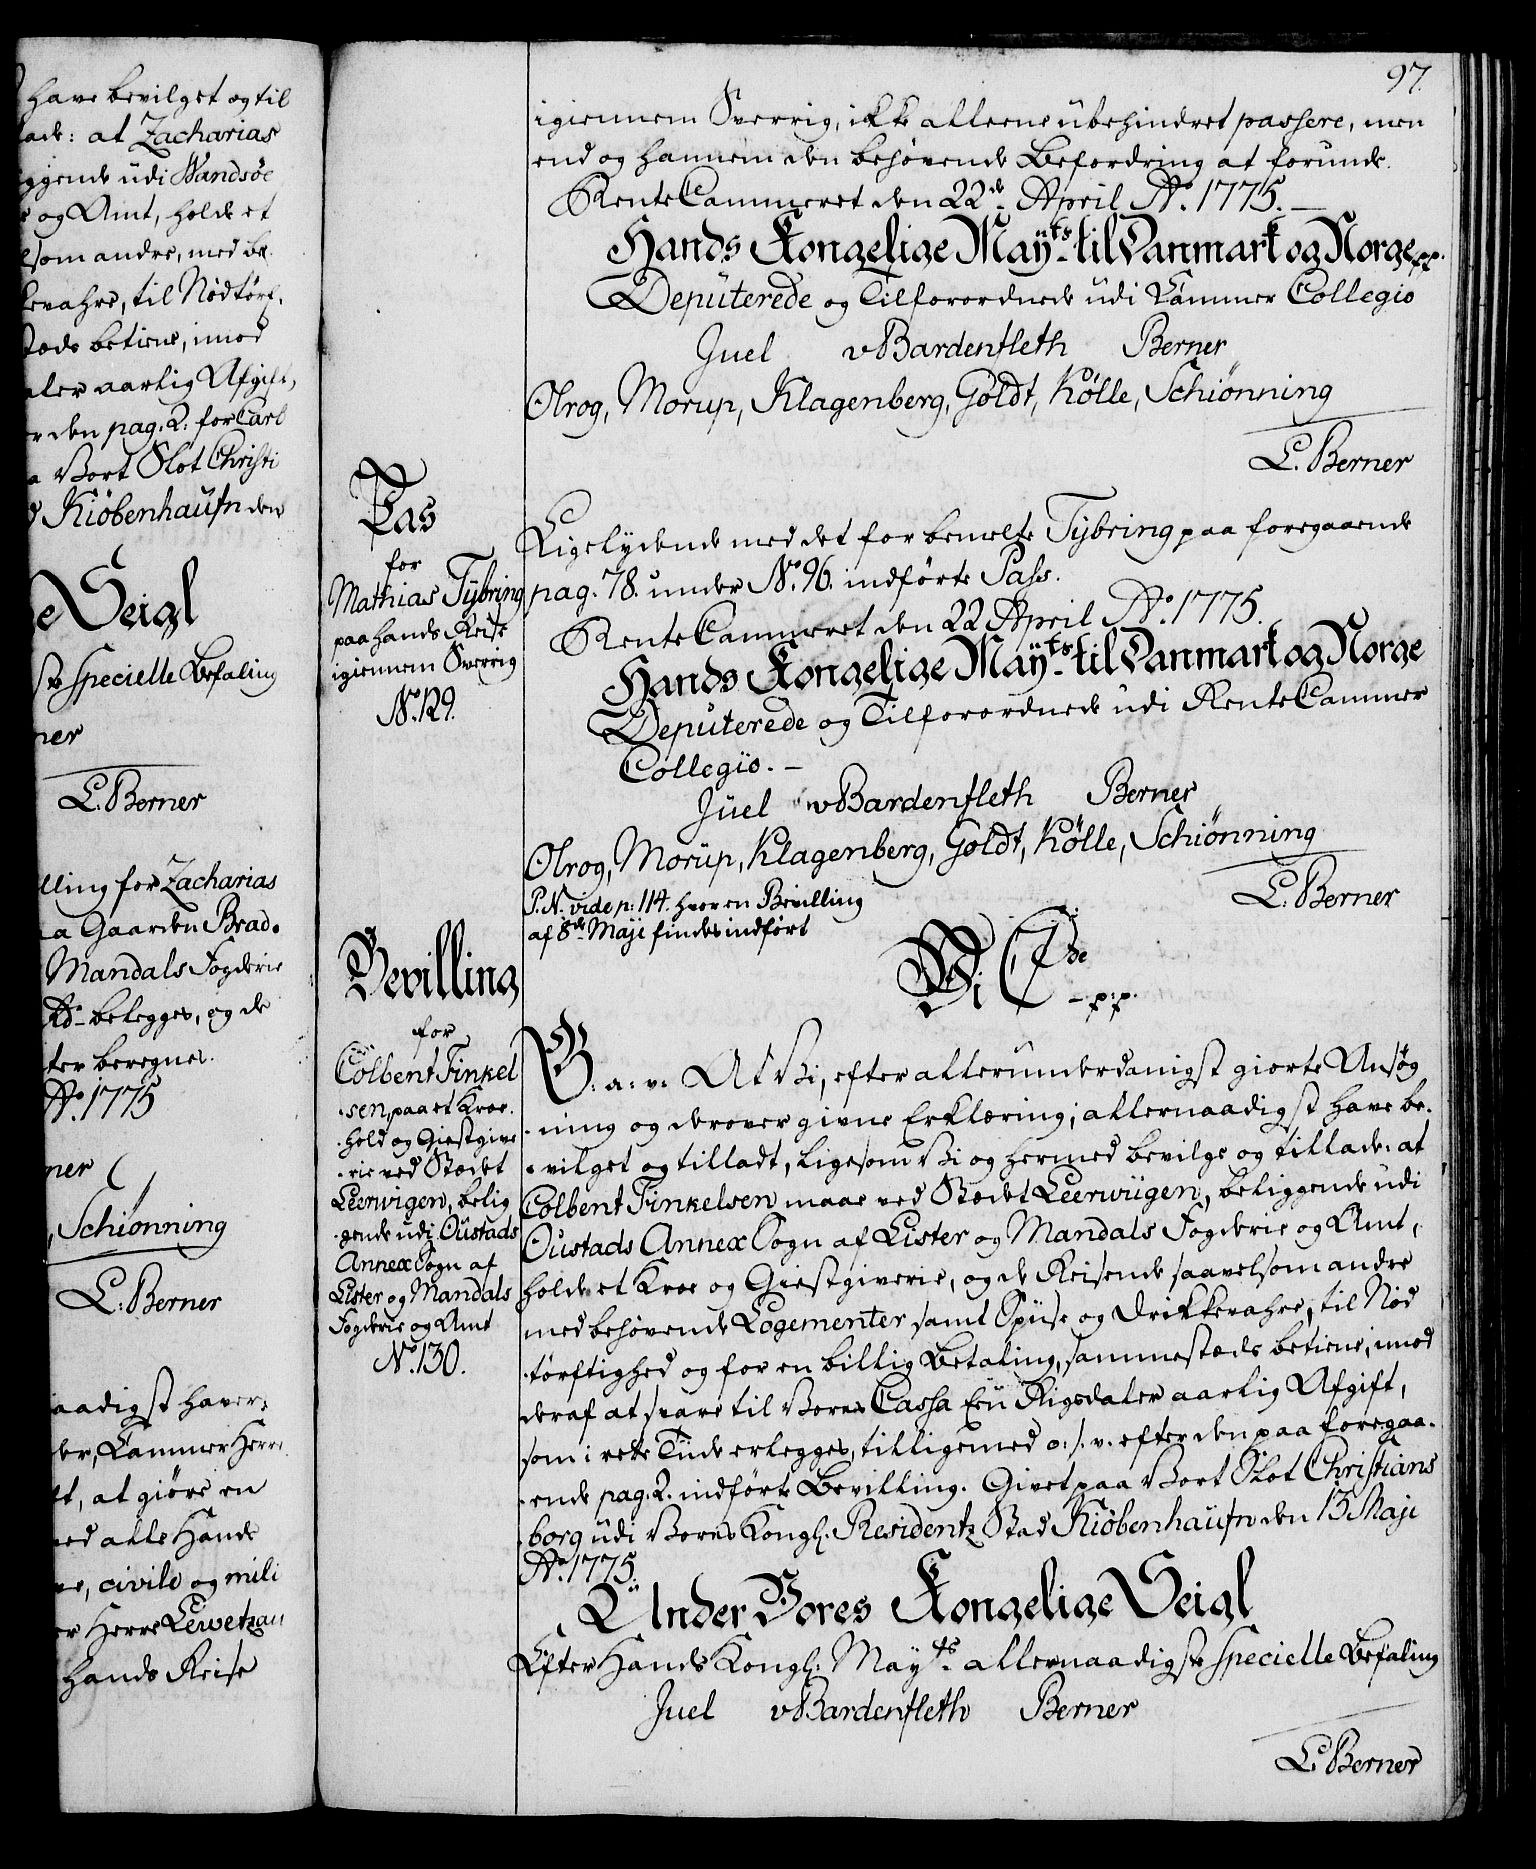 have bevilget og til
lade: at Zacharias
ggende udi Wandsöe
e og Amt, holde et
lsom andre, med be¬
kevahre, til Nödtörf¬
stæds betiene, imod
aler aarlig Afgift,
er den pag. 2. for Carl
a Vort Slot Christi
d Kiöbenhaufn den
ge Seigl
ste specielle Befaling
ner
L. Berner
lling for Zacharias
a Gaarden Brad¬
Mandals Fogderie
Rd. belegges, og de
ter beregnes.
Ao. 1775
ner
, Schiönning
L. Berner
aadigst haver
der, Cammer Herre
ft, at giöre en
ved alle Hande
ve, civile og mili
er Herre Lewetzau
hands Reise
97.
igiennem Sverrig, ikke alleene ubehindret passere, men
end og hannem den behövende Befordring at forunde.
RenteCammeret den 22de April Ao. 1775.
Hands Kongelige Mayts. til Danmark og Norge pp.
Deputerede og Tilforordnede udi Cammer Collegio
Juel vBardenfleth Berner
Olrog, Morup, Klagenberg, Goldt, Kölle, Schiönning
L. Berner
Pas
for
Mathias Tybring
paa hands Reise
igiennem Sverrig
No. 129.
Ligelydende med det for bemelte Tybring paa foregaaende
pag. 78. under No. 96. indförte Pass.
RenteCammeret den 22 April Ao. 1775.
Hands Kongelige Mayts. til Danmark og Norge
Deputerede og Tilforordnede udi RenteCammer
Collegio.
Juel vBardenfleth Berner
Olrog, Morup, Klagenberg, Goldt, Kölle, Schiönning
L. Berner
P.N. vide p: 114. hvor en Bevilling
af 8de Maji findes indfört
Bevilling
for
Colbent Finkel
sen, paa et Kroe¬
hold og Giestgive
rie ved Stædet
Leervigen, belig
gende udi Oustads
Annex Sogn af
Lister og Mandals
Fogderie og Amt
No. 130.
Vi C 7de pp.
G: a: v: At Vi, efter allerunderdanigst giorte Ansög
ning og derover givne Erklæring, allernaadigst have be¬
vilget og tilladt, ligesom Vi og hermed bevilge og tillade: at
Colbent Finkelsen maae ved Stædet Leerwiigen, beliggende udi
Oustads Annex Sogn af Lister og Mandals Fogderie og Amt,
holde et Kroe og Giestgiverie, og de Reisende saavelsom andre
med behövende Logementer samt Spiise og Drikkevahre, til Nöd
törftighed og for en billig Betaling, sammestæds betiene, imod
deraf at svare til Vores Cassa Een Rigsdaler aarlig Afgift,
som i rette Tiide erlegges, tilligemed o. s. v. efter den paa foregaa¬
ende pag. 2. indförte Bevilling. Givet paa Vort Slot Christians
borg udi Vores Kongl: Residentz Stad Kiöbenhaufn den 13 Maji
Ao. 1775.
Under Vores Kongelige Seigl
Efter Hands Kongl: Mayts. allernaadigste specielle Befaling
Juel vBardenfleth Berner
L. Berner